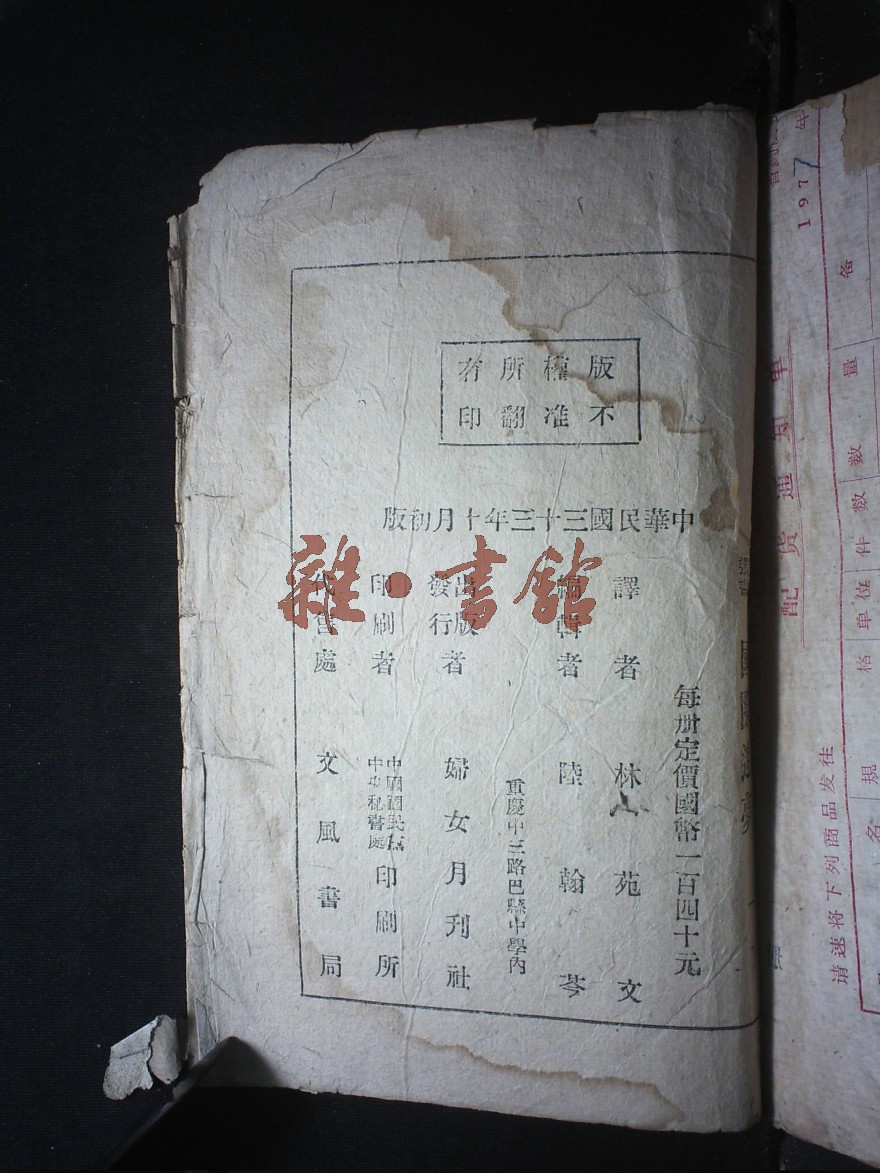 版權所有
不准翻印
中華民國三十三年十月初版
每册定價國幣一百四十元
譯者 林苑文
編輯者 陸翰芩
重慶中三路巴縣中學內
出版
發行者 婦女月刊社
印刷者 中國國民黨
中央秘書處印刷所
代售處 文風書局
雜·書館
配货通知单
1977年
请速将下列商品发往
名
规格
单位
件数
数量
备